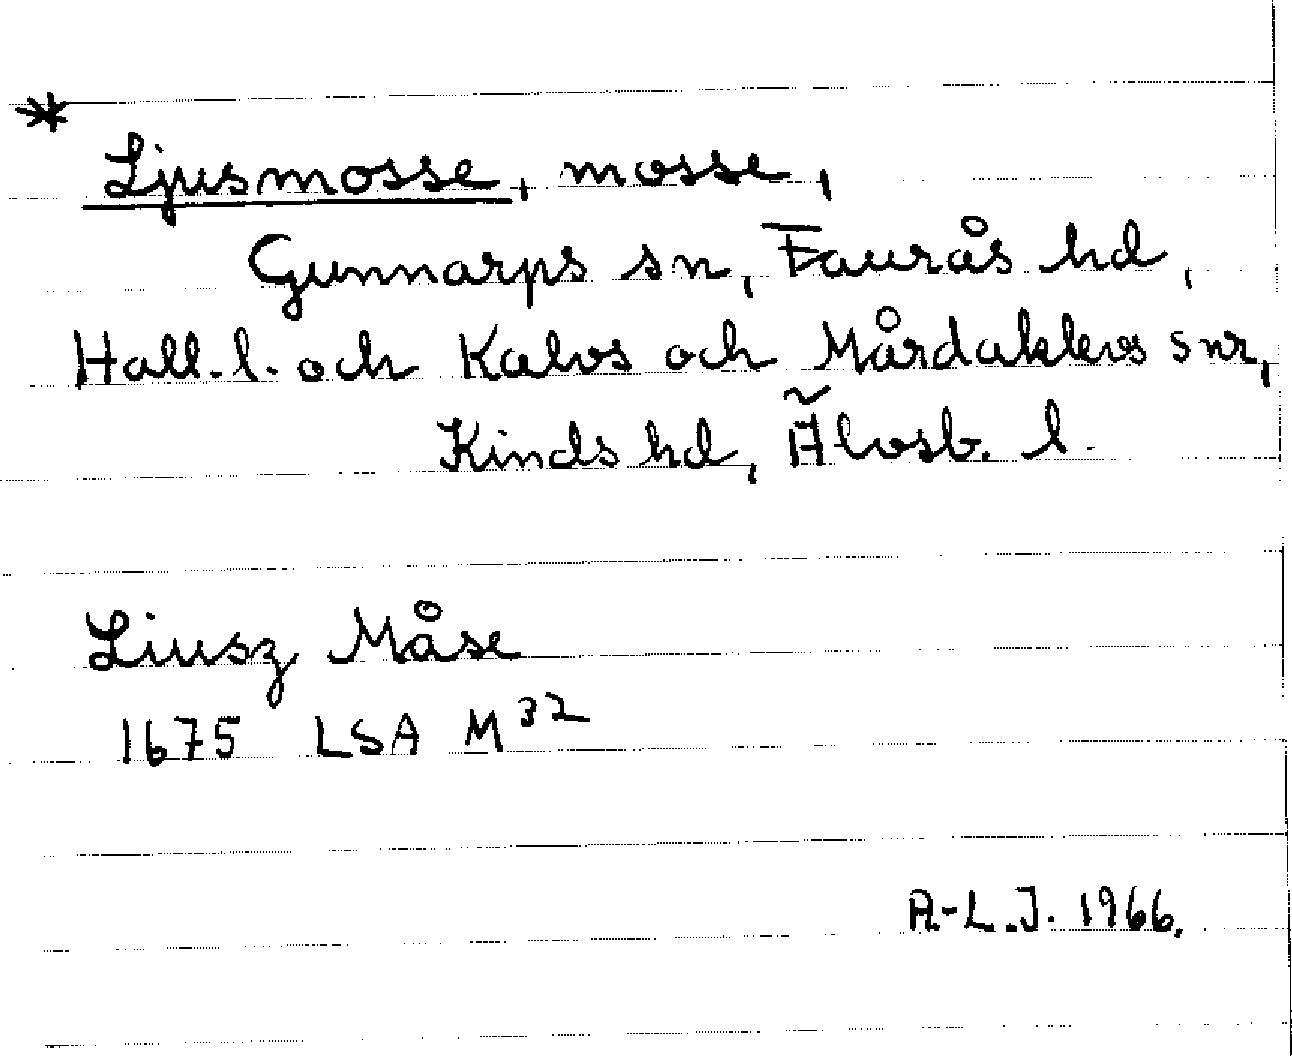 *
Ljusmosse, mosse,
Gunnarps sn, Faurås hd,
Hall. l. och Kalvs och Mårdaklevs snr,
Kinds hd, Älvsb. l.
Liusz Måse
1675 LSA M³²
A.-L.J. 1966.